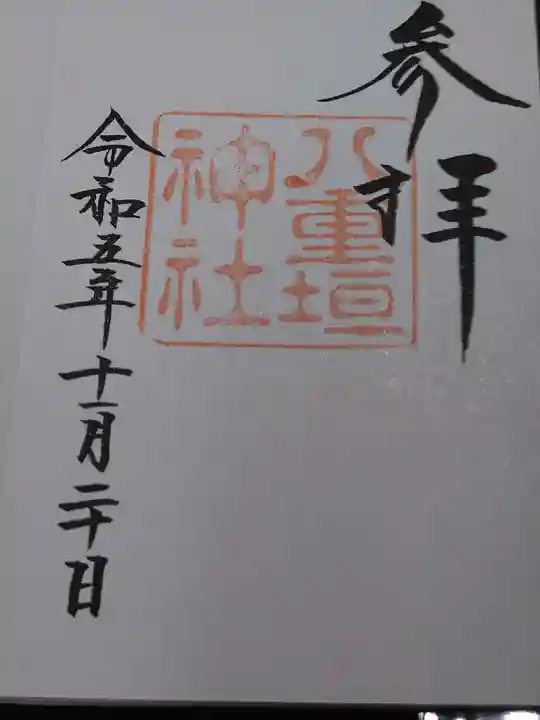 参拝す
八重垣
神社
令和五年十一月二十日